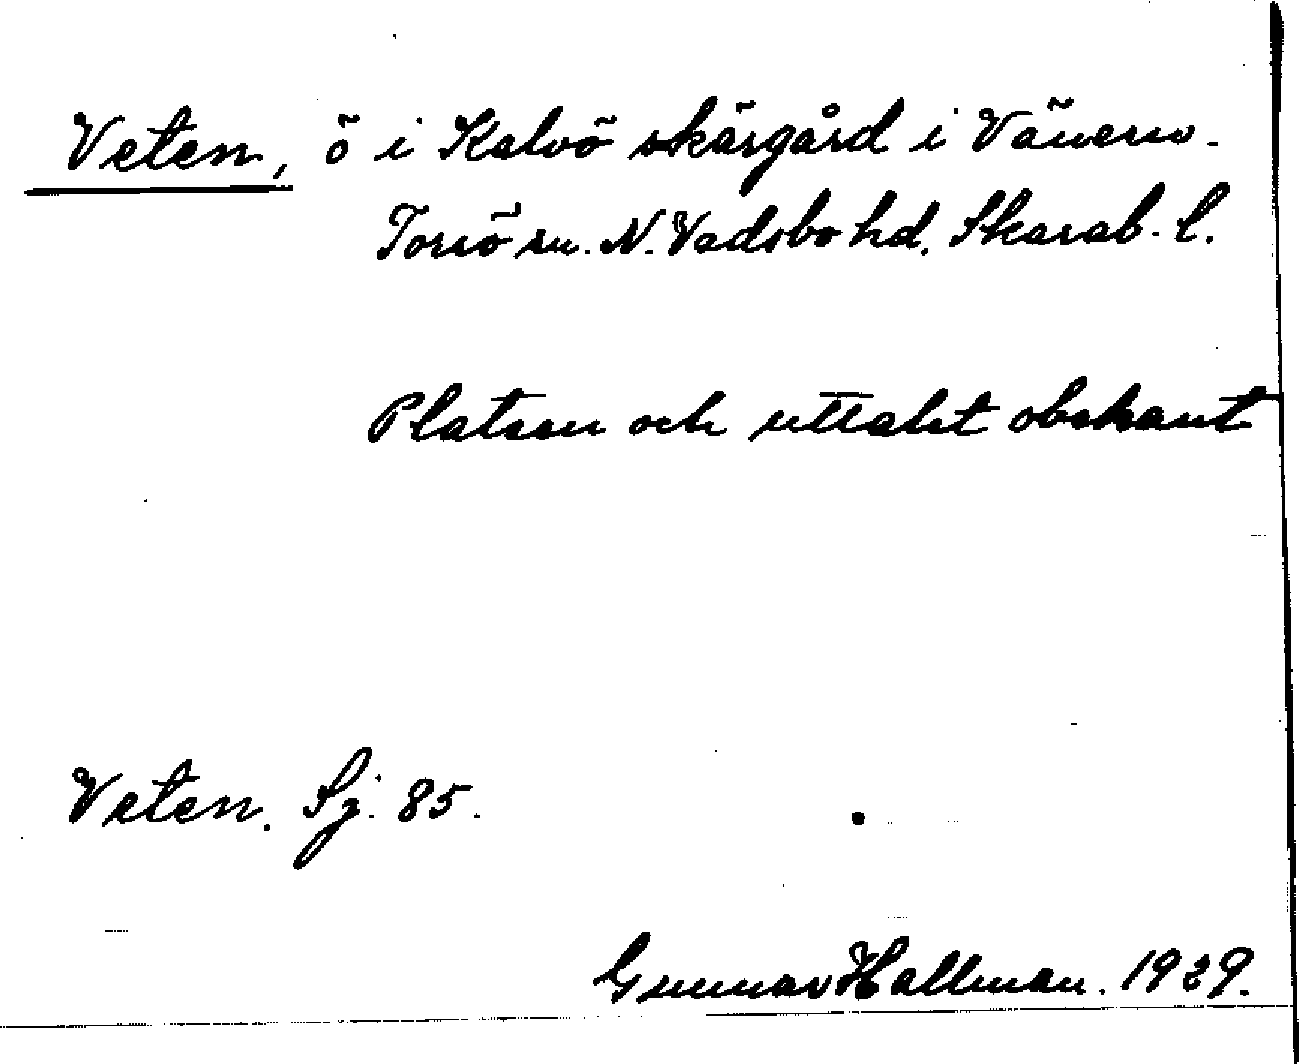 Veten, ö i Kalvö skärgård i Vänern.
Torsö sn. N. Vadsbo hd. Skarab. l.
Platsen och uttalet obekant
Veten. Sj. 85.
Gunnar Hallman. 1929.